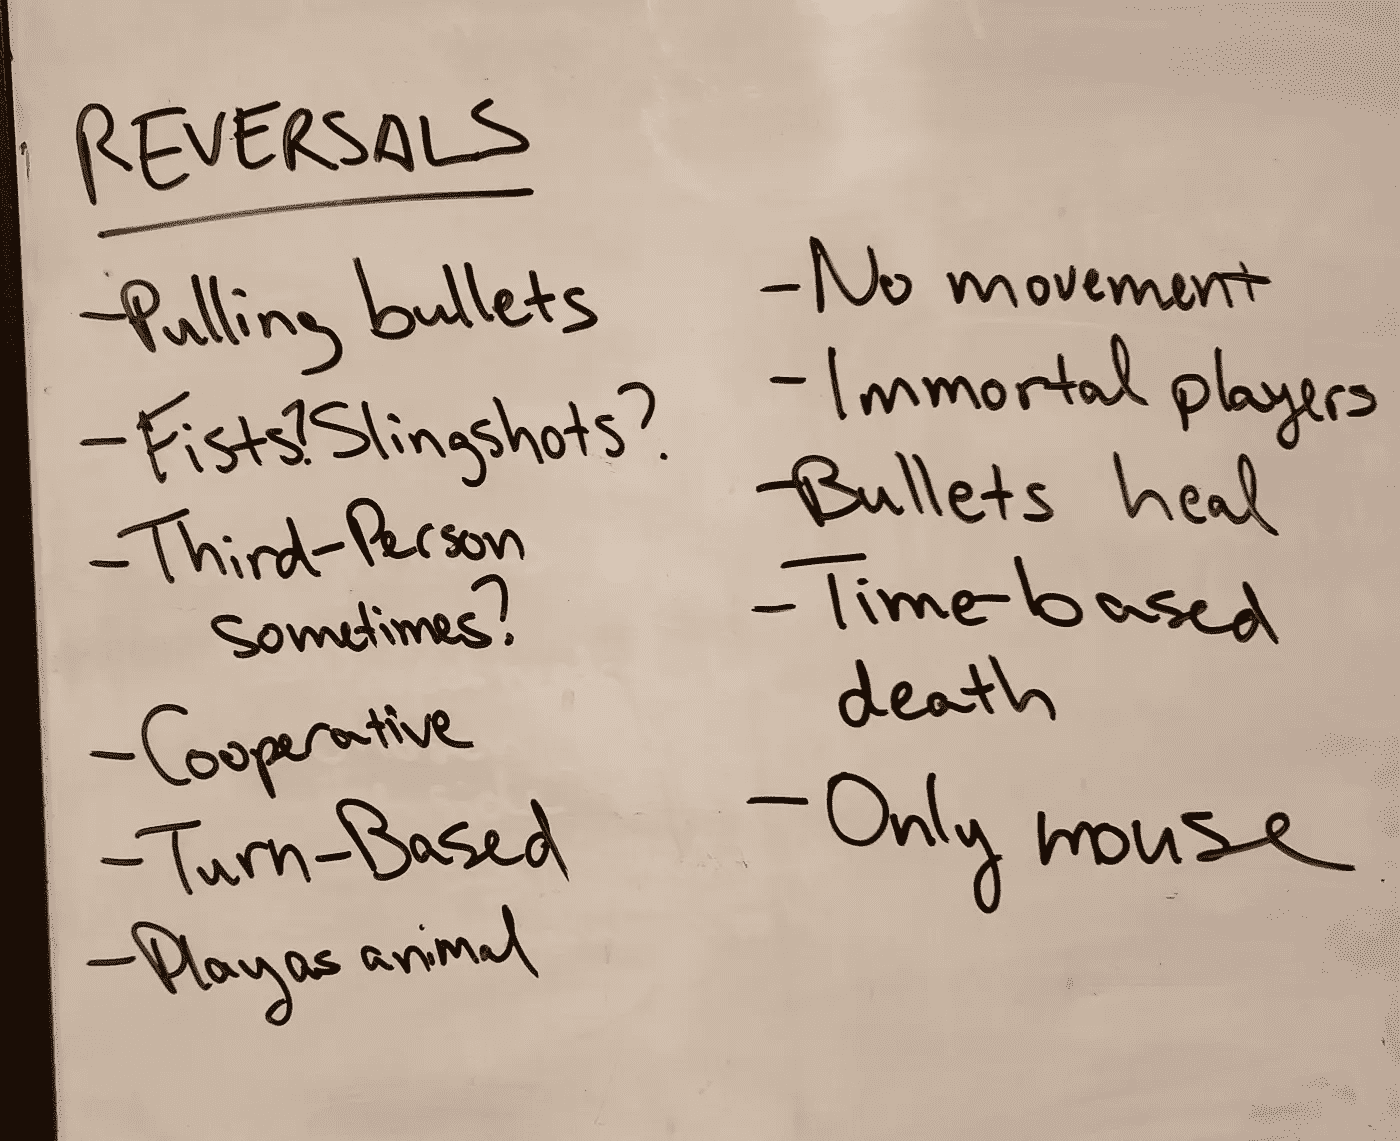 REVERSALS
- Pulling bullets
- Fists? Slingshots?
- Third-Person
sometimes?
- Cooperative
- Turn-Based
- Play as animal
- No movement
- Immortal players
- Bullets heal
- Time-based
death
- Only mouse